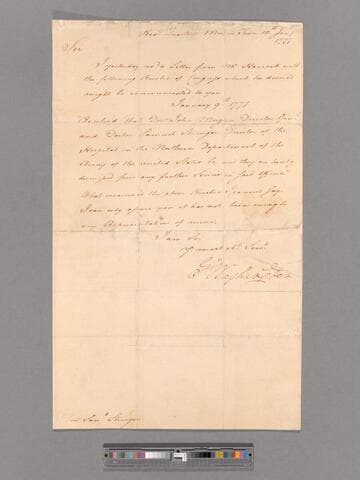 Head Quarters Morris Town 18th Jany
1777
Sir
I yesterday rec'd a Letter from Mr Hancock with
the following Resolve of Congress which he desired
might be communicated to you
January 9th 1777
Resolved that Doctr John Morgan Director Genl
and Doctor Samuel Stringer Director of the
Hospital in the Northern Department of the
Army of the united States be and they are hereby
dismissed from any further Service in said Offices
What occasioned the above Resolve I cannot say.
I can only assure you it has not been owing to
any Representations of mine.
I am Sir
Yr most Obt Servt
Go Washington
Saml Stringer